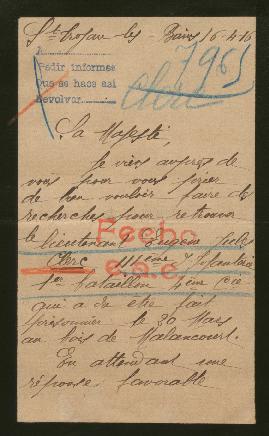 St Trojan les Bains 16-4-16
A
Pedir informes
Que se hace así
Devolver
7965
Clerc
Sa Majesté,
Je viens auprès de
vous pour vous prier
de bon vouloir faire des
recherches pour retrouver
le lieutenant Eugène Jules
Clerc 111ème d'Infanterie
1er bataillon 4ème Cie
Fecho
e.a.c
qui a du être fait
prisonnier le 20 Mars
au bois de Malancourt.
En attendant une
réponse favorable